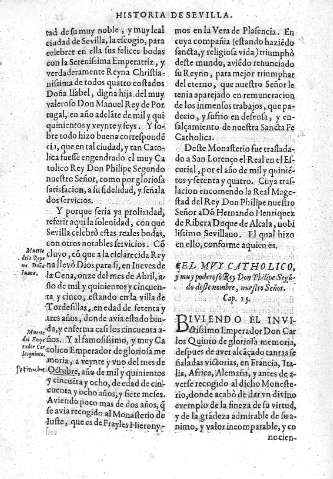 HISTORIA DE SEVILLA.
tad de su muy noble, y muy leal
ciudad de Sevilla, la escogio, para
celebrar en ella sus felices bodas
con la Serenissima Emperatriz, y
verdaderamente Reyna Christia-
nissima de todos quatro costados
Doña Isabel, digna hija del muy
valeroso Don Manuel Rey de Por
tugal, en año adelãte de mil y qui
quinientos y veynte y seys. Y so-
bre todo hizo buena correspondẽ
cia, que en tal ciudad, y tan Catho
lica fuesse engendrado el muy Ca
tolico Rey Don Philipe Segundo
nuestro Señor, como por gloriosa
satisfacion, a su fidelidad, y señala
dos servicios.
Y porque seria ya prolixidad,
referir aqui la solenidad, con que
Sevilla celebró estas reales bodas,
con otros notables servicios. Cõ
cluyo, cõ que a la esclarecida Rey
na llevó Dios para si, en Iueves de
la Cena, onze del mes de Abril, a-
ño de mil y quinientos y cincuen-
ta y cinco, estando en la villa de
Tordesillas, en edad de setenta y
tres años, donde avia estado biu-
da, y enferma casi los cincuenta a-
ños. Y al famosissimo, y muy Ca
tolico Emperador de gloriosa me
moria, a veynte y uno del mes de
Octubre, año de mil y quinientos
y cincuenta y ocho, de edad de cin
cuenta y ocho años, y siete meses.
Aviendo poco mas de dos años, q̃
se avia recogido al Monasterio de
Iuste, que es de Frayles Hierony-
Muerte
de la Rey
na Doña
Iuana.
Muerte
del Empe
rador Car
Setiembre
mos en la Vera de Plasencia. En
cuya compañia (estando haziẽdo
sancta, y religiosa vida) triumphò
deste mundo, aviẽdo renunciado
su Reyno, para mejor triumphar
del eterno, que nuestro Señor le
tenia aparejado en remuneracion
de los inmensos trabajos, que pa-
decio, y sufrio en defensa, y en-
salçamiento de nuestra Sancta Fe
Catholica.
Deste Monasterio fue traslada-
do a San Lorenço el Real en el Es-
curial, por el año de mil y quinie-
tos y setenta y quatro. Cuya tras-
lacion encomendo la Real Mages-
tad del Rey Don Philipe nuestro
Señor a Dõ Hernando Henriquez
de Ribera Duque de Alcala, nobi-
lissimo Sevillano. El qual hizo
en ello, conforme aquien es.
EL MVY CATHOLICO,
y muy poderoso Rey Don Philipe Segũ-
do deste nombre, nuestro Señor.
Cap. 15.
DIVIENDO EL INVI
ctissimo Emperador Don Car
los Quinto de gloriosa memoria,
despues de aver alcãçado tantas se
ñaladas victorias, en Francia, Ita-
lia, Africa, Alemaña, y antes de a-
verse recogido al dicho Moneste-
rio, donde acabò de dar vn divino
exemplo de la fineza de su virtud,
y de la grãdeza admirable de se a-
nimo, y valor incomparable, y co
nocien-